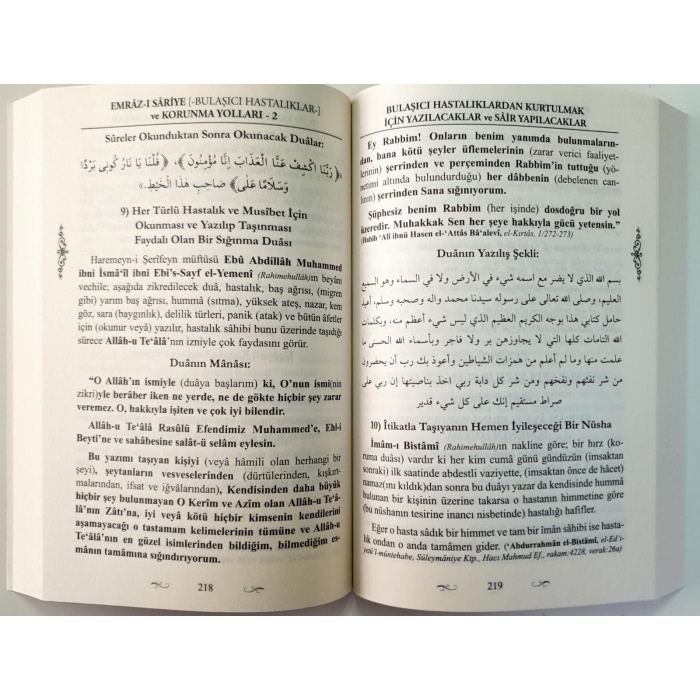 EMRÂZ-I SÂRİYE [-BULAŞICI HASTALIKLAR-]
ve KORUNMA YOLLARI - 2
Sûreler Okunduktan Sonra Okunacak Duâlar:
﴿ رَبَّنَا اكْشِفْ عَنَّا الْعَذَابَ إِنَّا مُؤْمِنُونَ ﴾، ﴿ قُلْنَا يَا نَارُ كُونِي بَرْدًا
وَسَلَامًا عَلَى ﴾ صَاحِبِ هَذَا الْخَيْطِ. »
9) Her Türlü Hastalık ve Musîbet İçin
Okunması ve Yazılıp Taşınması
Faydalı Olan Bir Sığınma Duâsı
Haremeyn-i Şerîfeyn müftüsü Ebû Abdillâh Muhammed
ibni İsmâ'îl ibni Ebi's-Sayf el-Yemenî (Rahimehullâh)ın beyânı
vechile; aşağıda zikredilecek duâ, hastalık, baş ağrısı, (migren
gibi) yarım baş ağrısı, hummâ (sıtma), yüksek ateş, nazar, kem
göz, sara (baygınlık), delilik türleri, panik (atak) ve bütün âfetler
için (okunur veyâ) yazılır, hastalık sâhibi bunu üzerinde taşıdığı
sürece Allâh-u Te'âlâ'nın izniyle çok faydasını görür.
Duânın Mânâsı:
"O Allâh'ın ismiyle (duâya başlarım) ki, O'nun ismi(nin
zikri)yle berâber iken ne yerde, ne de gökte hiçbir şey zarar
veremez. O, hakkıyla işiten ve çok iyi bilendir.
Allâh-u Te'âlâ Rasûlü Efendimiz Muhammed'e, Ehl-i
Beyti'ne ve sahâbesine salât-ü selâm eylesin.
Bu yazımı taşıyan kişiyi (veyâ hâmili olan herhangi bir
şeyi), şeytanların vesveselerinden (dürtülerinden, kışkırt-
malarından, ifsat ve iğvâlarından), Kendisinden daha büyük
hiçbir şey bulunmayan O Kerîm ve Azîm olan Allâh-u Te'â-
lâ'nın Zâtı'na, iyi veyâ kötü hiçbir kimsenin kendilerini
aşamayacağı o tastamam kelimelerinin tümüne ve Allâh-u
Te'âlâ'nın en güzel isimlerinden bildiğim, bilmediğim es-
mânın tamâmına sığındırıyorum.
218
BULAŞICI HASTALIKLARDAN KURTULMAK
İÇİN YAZILACAKLAR ve SÂİR YAPILACAKLAR
Ey Rabbim! Onların benim yanımda bulunmaların-
dan, bana kötü şeyler üflemelerinin (zarar verici faaliyet-
lerinin) şerrinden ve perçeminden Rabbim'in tuttuğu (yö-
netimi altında bulundurduğu) her dâbbenin (debelenen can-
lının) şerrinden Sana sığınıyorum.
Şüphesiz benim Rabbim (her işinde) dosdoğru bir yol
üzeredir. Muhakkak Sen her şeye hakkıyla gücü yetensin."
(Habib 'Alî ibnü Hasen el-'Attâs Bâ'alevî, el-Kırtâs, 1/272-273)
Duânın Yazılış Şekli:
بسم الله الذي لا يضر مع اسمه شيء في الأرض ولا في السماء وهو السميع
العليم، وصلى الله تعالى على رسوله سيدنا محمد وآله وصحبه وسلم، أعيذ
حامل كتابي هذا بوجه الكريم العظيم الذي ليس شيء أعظم منه، وبكلمات
الله التامات كلها التي لا يجاوزهن بر ولا فاجر وبأسماء الله الحسنى ما
علمت منها وما لم أعلم من همزات الشياطين وأعوذ بك رب أن يحضرون
من شر نفثهم ونفخهم ومن شر كل دابة ربي آخذ بناصيتها إن ربي على
صراط مستقيم إنك على كل شيء قدير
10) İtikatla Taşıyanın Hemen İyileşeceği Bir Nüsha
İmâm-ı Bistâmî (Rahimehullâh)ın nakline göre; bir hırz (ko-
ruma duâsı) vardır ki her kim cumâ günü gündüzün (imsaktan
sonraki) ilk saatinde abdestli vaziyette, (imsaktan önce de hâcet)
namaz(ını kıldık)dan sonra bu duâyı yazar da kendisinde hummâ
bulunan bir kişinin üzerine takarsa o hastanın himmetine göre
(bu nüshanın tesirine inancı nisbetinde) hastalığı hafifler.
Eğer o hasta sâdık bir himmet ve tam bir îmân sâhibi ise hasta-
lık ondan o anda tamâmen gider. ('Abdurrahmân el-Bistâmî, el-Ed'ı-
yetü'l-müntehabe, Süleymâniye Ktp., Hacı Mahmud Ef., rakam:4228, verak:26a)
219